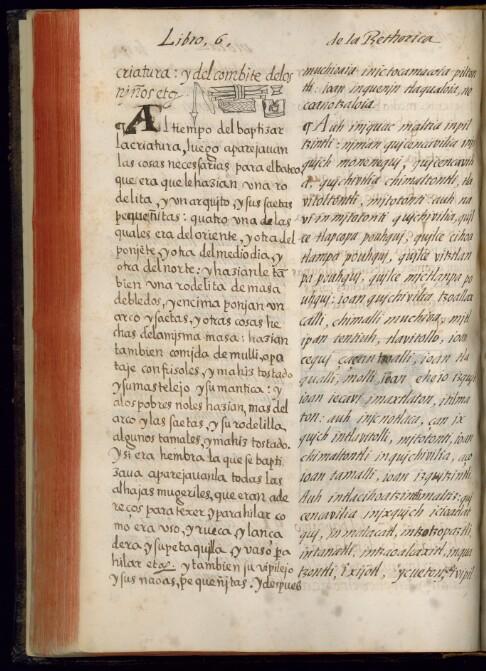 Libro, 6,
de la Rethorica
criatura: y del combite delos
niños etc.
Al tiempo del baptizar
la criatura, luego aparejauan
las cosas necessarias para el bateo
que era que le hazian vna ro
delita, y vn arquito, y sus saetas
pequeñitas: quatro vna de las
quales era del oriente, y otra del
ponjẽte, y otra del mediodia, y
otra del norte: y hazianle tã
bien vna rodelita de masa
de bledos, y encima ponjan vn
arco y saetas, y otras cosas he
chas dela mjsma masa: hazian
tambien comida de mulli, o pa
taje con frisoles, y mahiz tostado
y su mastelejo y su mantica: y
alos pobres no les hazian, mas del
arco y las saetas, y su rodelilla,
algunos tamales, y mahiz tostado.
Y si era hembra la que se bapti
zaua aparejauanla todas las
alhajas mugeriles, que eran ade
reços para texer, y para hilar co
mo era vso, y rueca, y lança
dera, y su petaquilla, y vaso pa
hilar etc. y tambien su vipilejo
y sus naoas, pequeñitas. Y despues
muchioaia injc tocamacoia pilton
tli: ioan in quenjn tlaqualoia, no
caaoətzaloia
Auh in jquac maltia in pil
tzintli: njman qujcencavilia in
qujch monenequj, qujcencavilia
qujchivilia chimaltontli, tla
vitoltontli, mjtotonti: auh na
vi in mjtotonti qujchivilia, qujl
ce tlapcopa pouhquj, qujlce cihoa
tlampa pouhquj, qujlce vitztlan
pa pouhquj, qujlce mictlanpa po
uhquj: ioan qujchivilia, tzoalla
calli, chimalli muchioa, mjtl
ipan tentiuh, tlavitollo, ioan
cequj tla
qualli, molli, ioan izqujtl
ioan iecavi imaxtlaton, itilma
ton: auh injcnotlaca, çan ix
qujch intlavitolli, mjtotonti, ioan
chimaltontli in qujchivilia, aço
ioan tamalli, ioan izqujtzintli.
Auh intla cihoatzintli maltia: qu
cencavilia in jxqujch icioatlat
quj, in malacatl, in tzotzopaztli,
in tanatli, in tzaoalcaxitl, in qua
tzontli, ixijotl, ycueton, ivipil